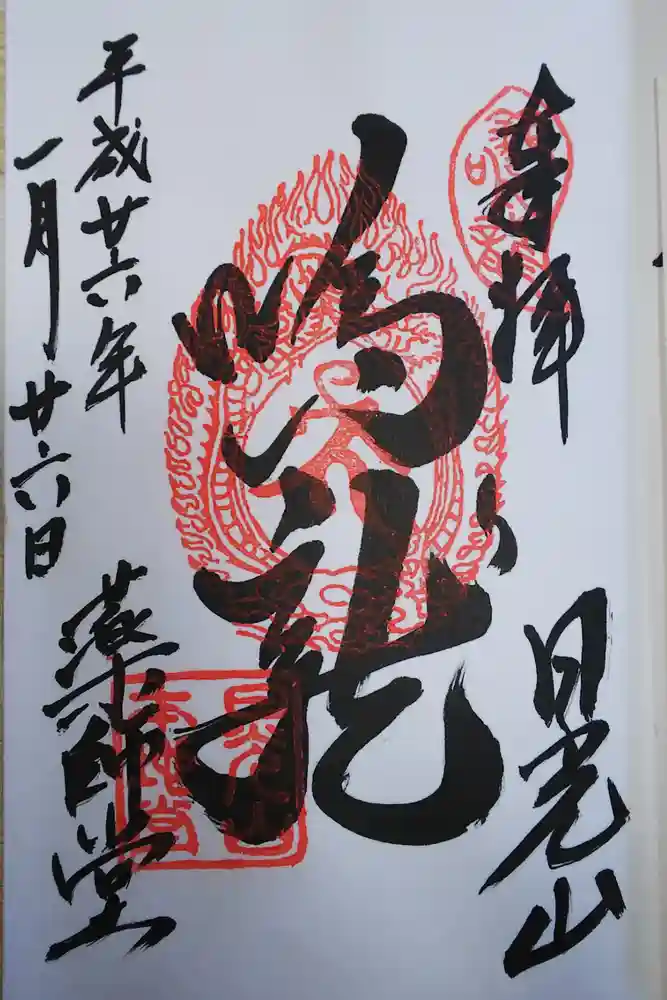 奉拝
日光山
鳴龍
平成廿六年
一月廿六日
薬師堂